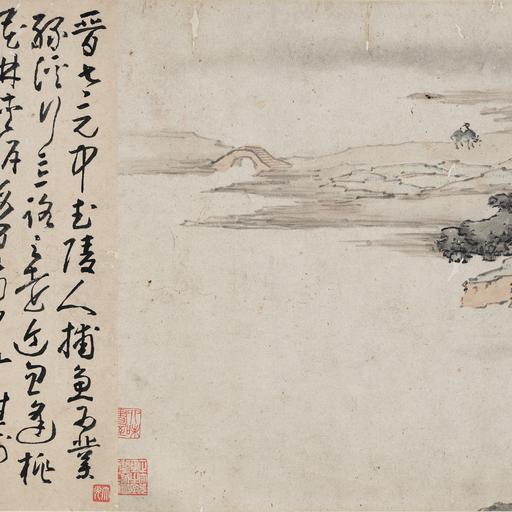 晉太元中武陵人捕魚為業
緣溪行忘路之遠近忽逢桃
花林夾岸數百